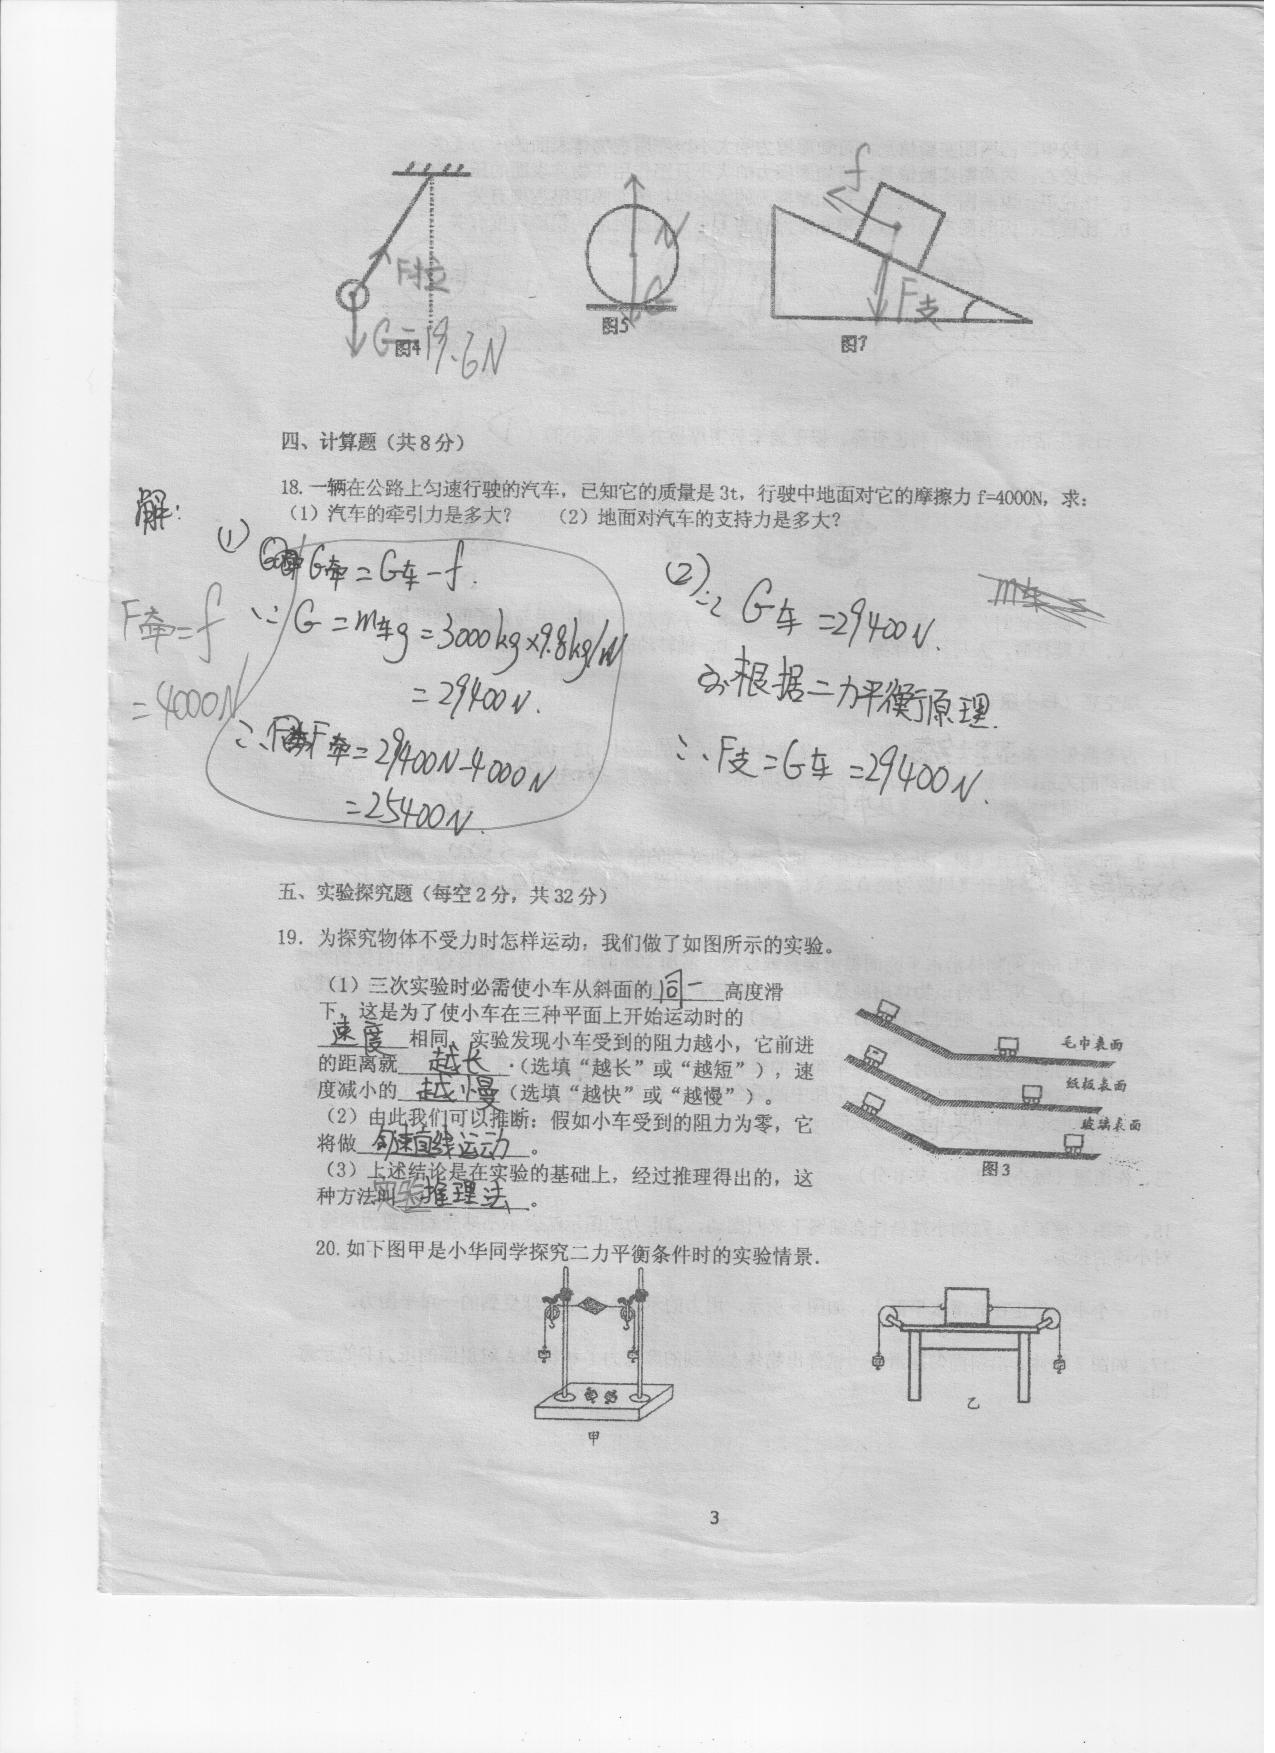 F拉
G=19.6N
图4
N
G
图5
f
F支
图7
四、计算题（共8分）
18.一辆在公路上匀速行驶的汽车，已知它的质量是3t，行驶中地面对它的摩擦力f=4000N，求：
（1）汽车的牵引力是多大？ （2）地面对汽车的支持力是多大？
解：
(1)
G牵=G车-f.
∵G=m车g=3000kg×9.8kg/N
=29400N.
∴F牵=29400N-4000N
=25400N.
F牵=f
=4000N
(2)∵G车=29400N.
m车
根据二力平衡原理.
∴F支=G车=29400N.
五、实验探究题（每空2分，共32分）
19. 为探究物体不受力时怎样运动，我们做了如图所示的实验。
（1）三次实验时必需使小车从斜面的同一高度滑
下，这是为了使小车在三种平面上开始运动时的
速度相同、实验发现小车受到的阻力越小，它前进
的距离就越长·（选填“越长”或“越短”），速
度减小的越慢（选填“越快”或“越慢”）。
（2）由此我们可以推断：假如小车受到的阻力为零，它
将做匀速直线运动。
（3）上述结论是在实验的基础上，经过推理得出的，这
种方法叫实验推理法。
毛巾表面
纸板表面
玻璃表面
图3
20.如下图甲是小华同学探究二力平衡条件时的实验情景．
甲
乙
3